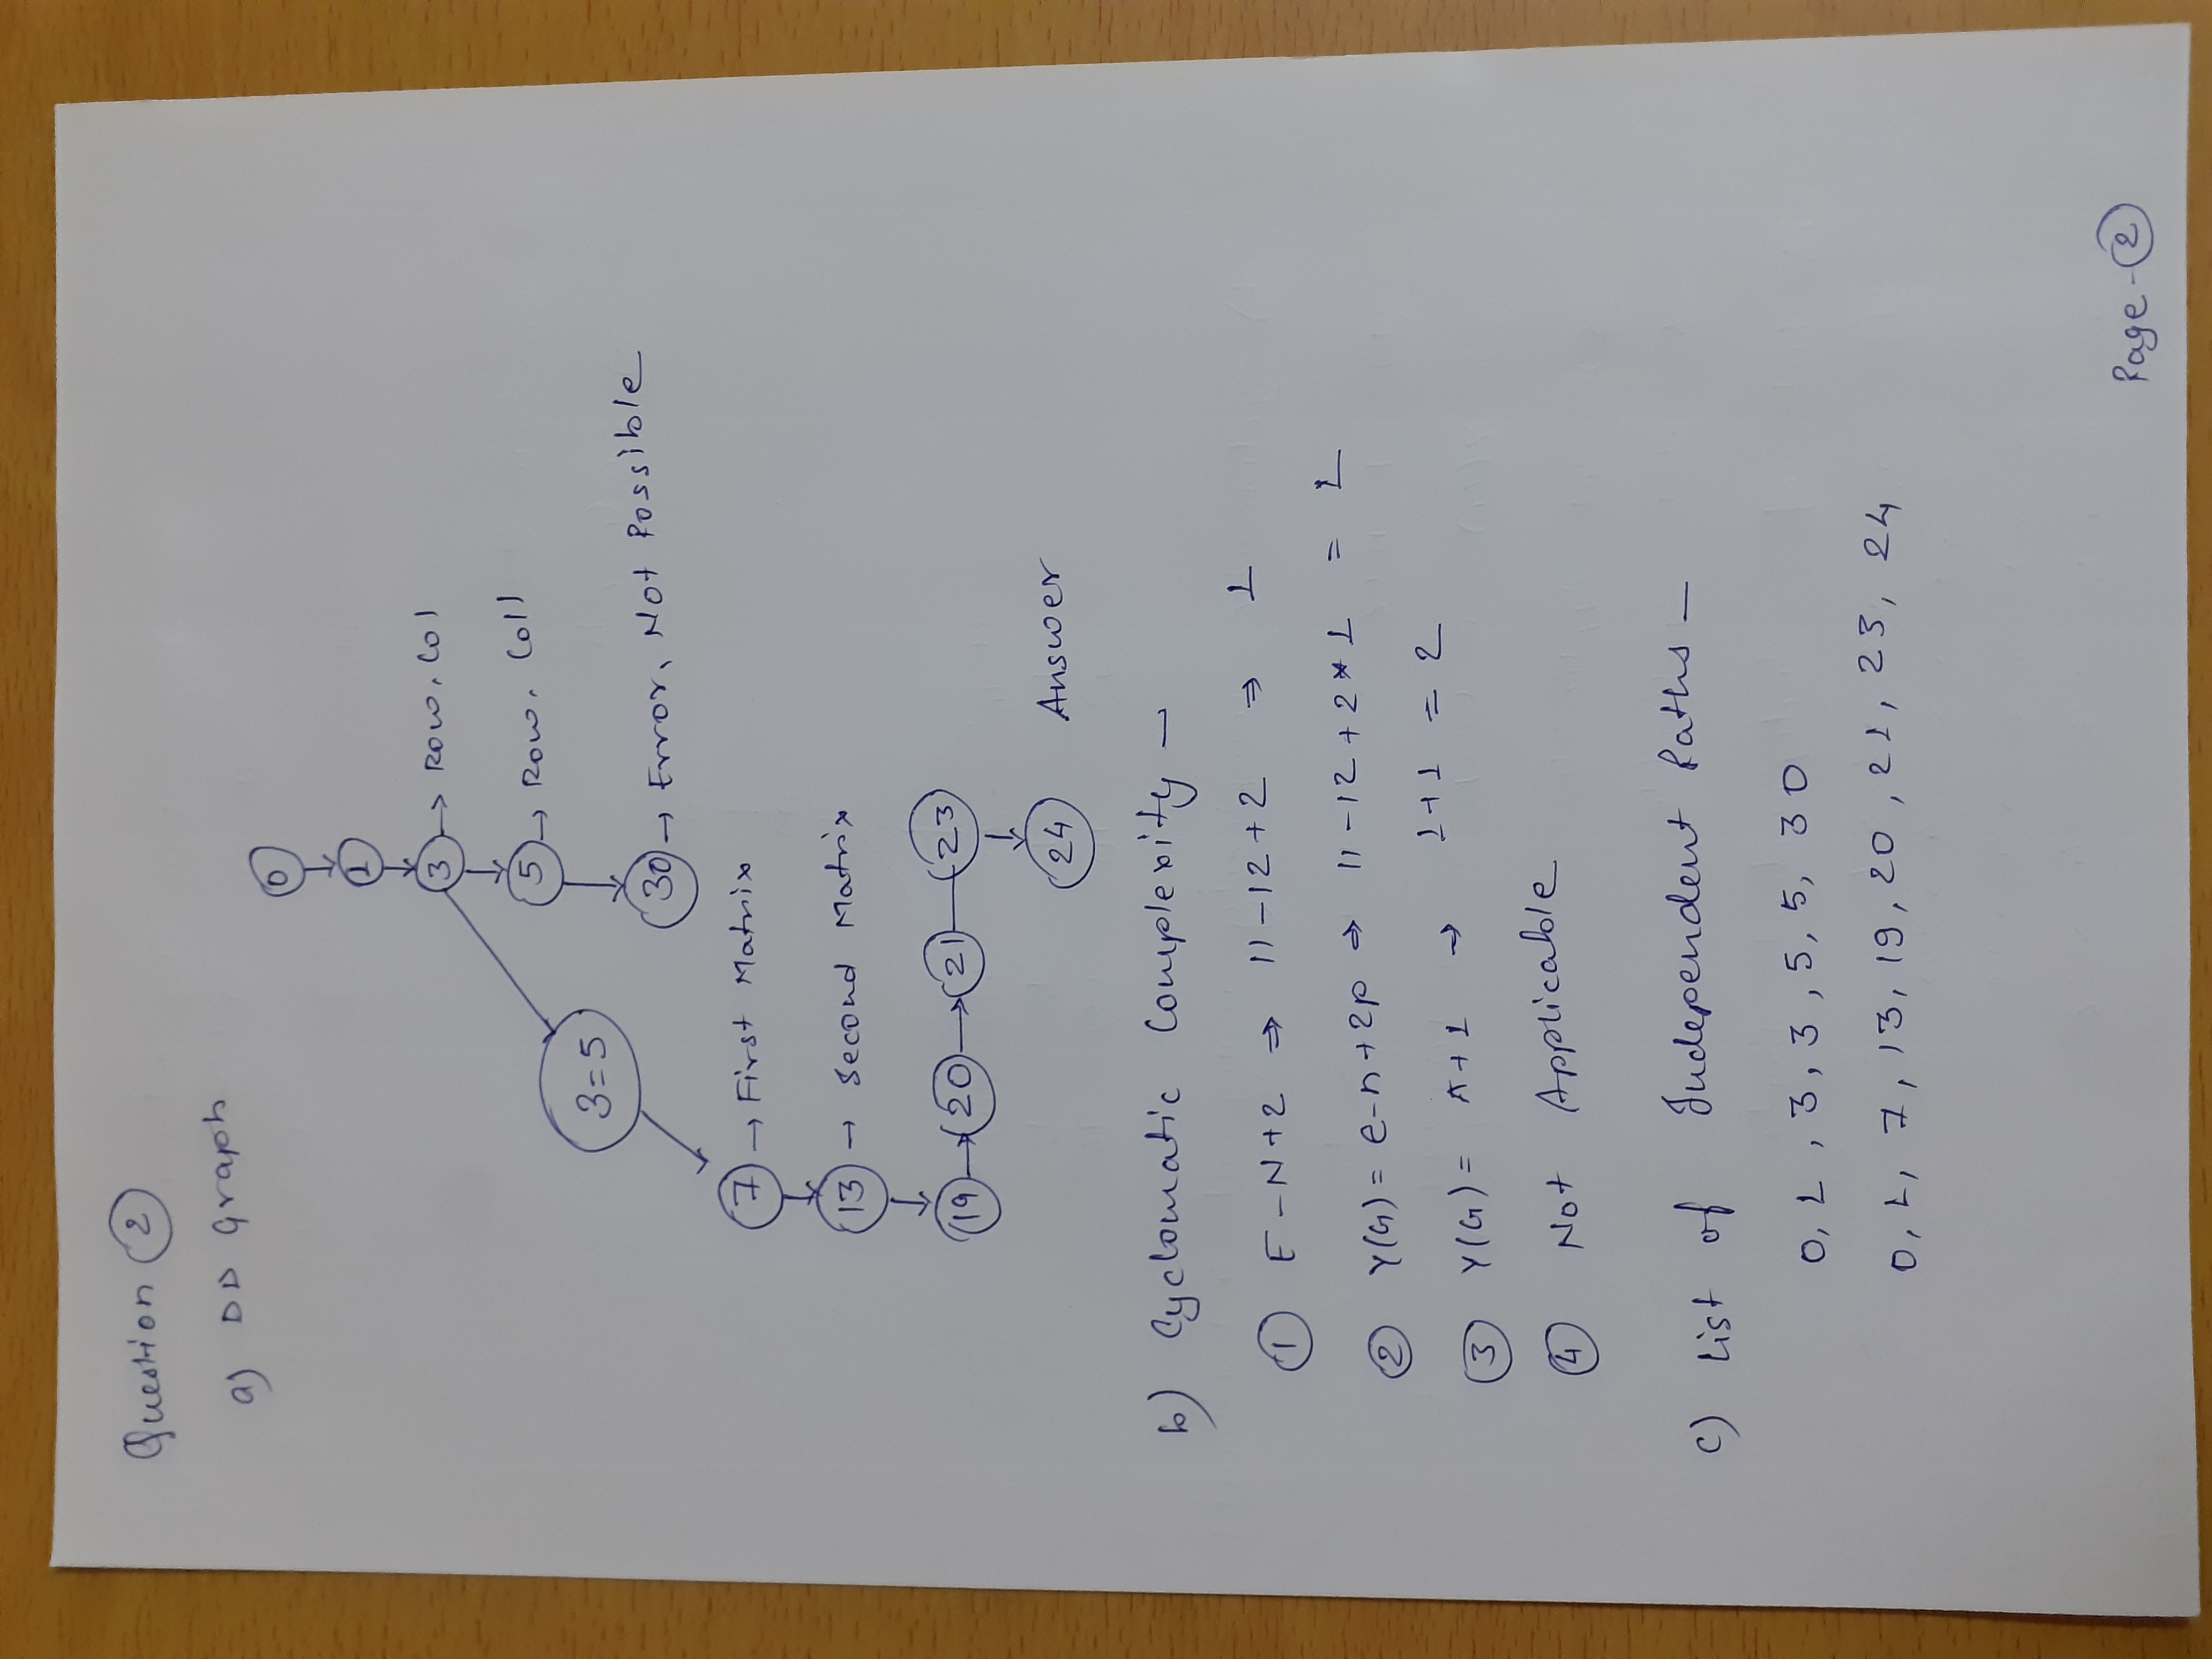 Question 2
a) DD Graph
0
1
3 → Row, Col
5 → Row, Coll
3=5
30 → Error, Not Possible
7 → First Matrix
13 → Second Matrix
19 → 20 → 21 — 23
24 Answer
b) Cyclomatic Complexity —
1 E - N + 2 ⇒ 11 - 12 + 2 ⇒ 1
2 Y(G) = e - n + 2p ⇒ 11 - 12 + 2 * 1 = 1
3 Y(G) = π + 1 → 1 + 1 = 2
4 Not Applicable
c) List of Independent Paths —
0, 1, 3, 3, 5, 5, 30
0, 1, 7, 13, 19, 20, 21, 23, 24
Page - 2